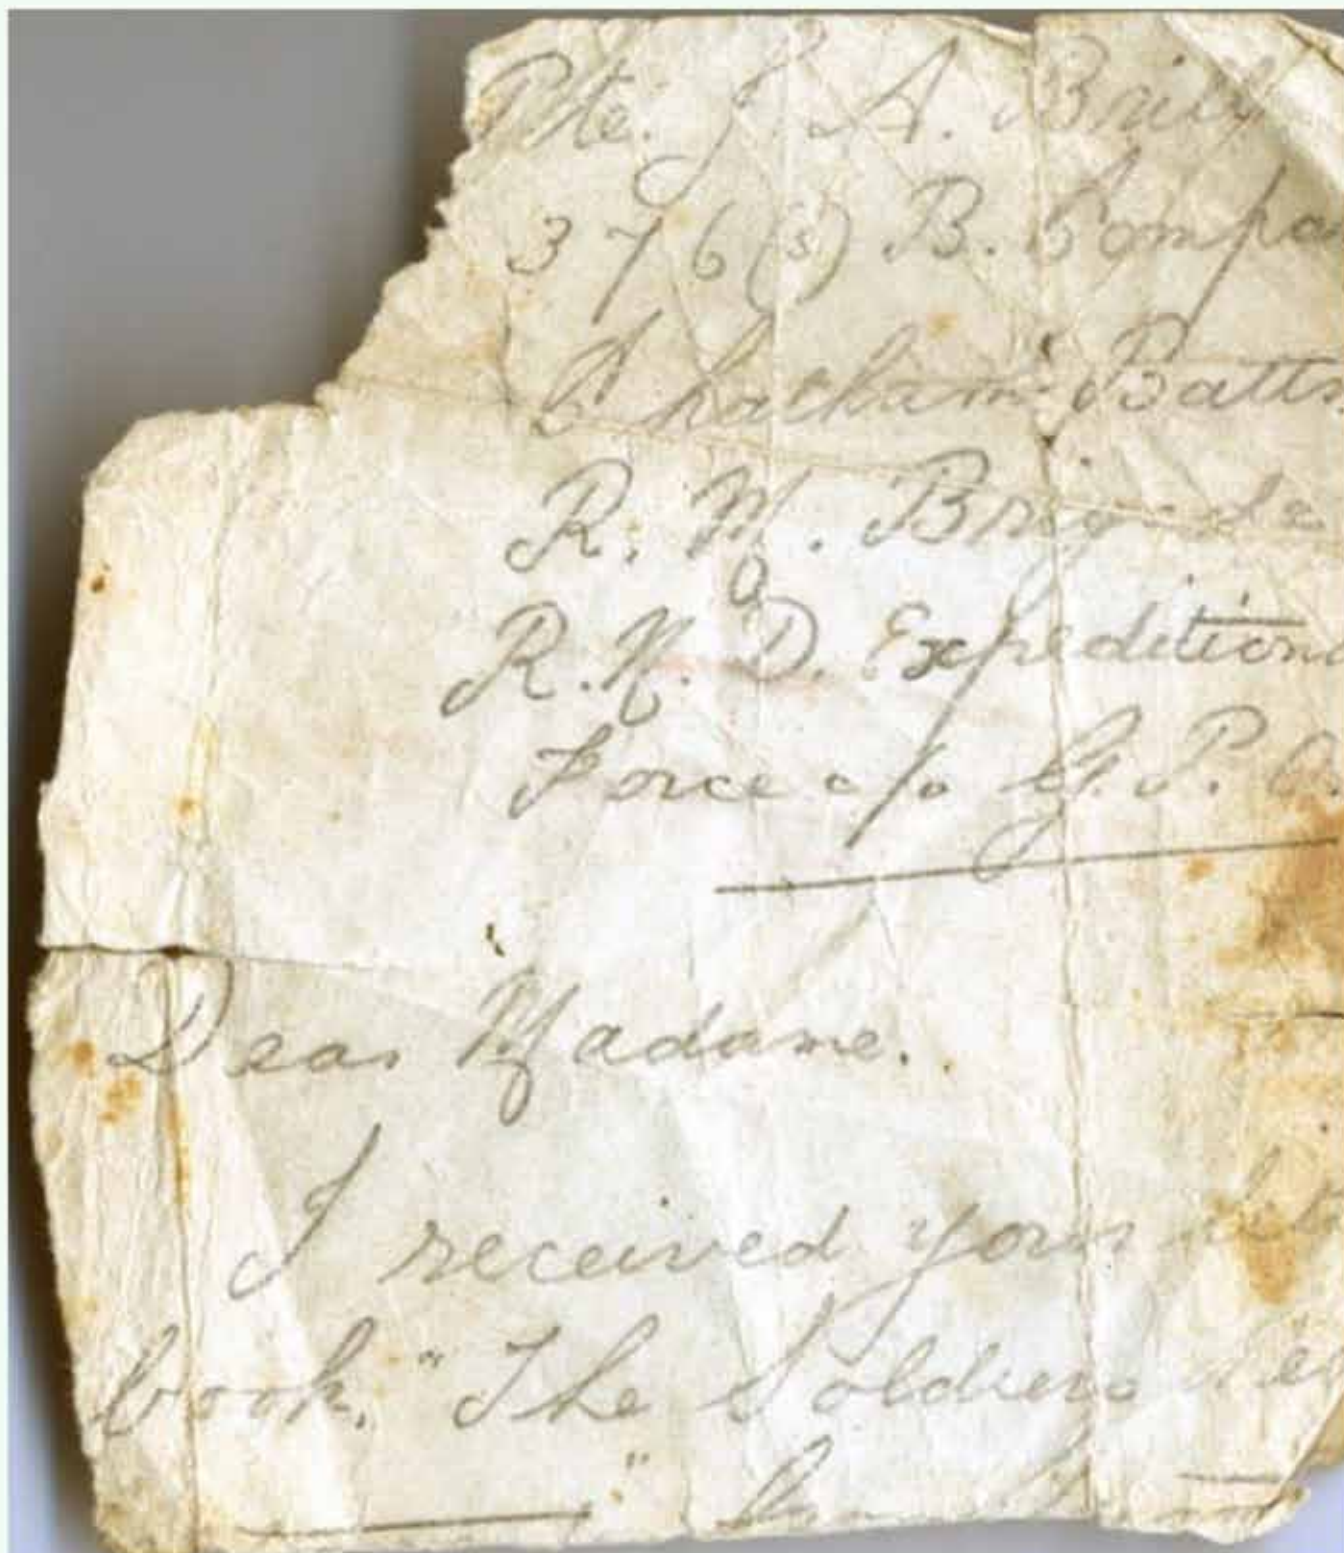 Pte. J. A.
376(s) B. Compa
Chatham Battn
R. M. Brigade
R. N. D. Expeditiona
Force c/o G. P. O.
Dear Madame.
I received your
book. "The Soldiers
"